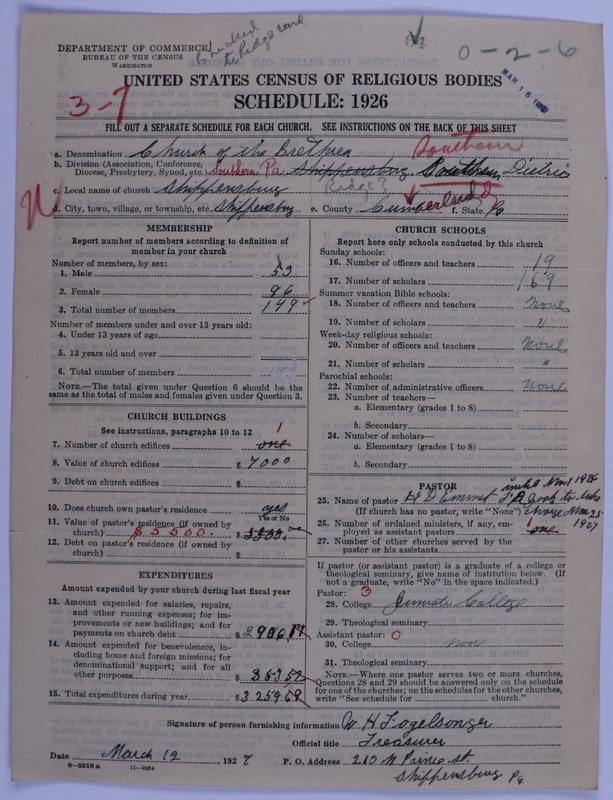 Checked to Ridge card
64
0-2-6
MAR 16
3-7
DEPARTMENT OF COMMERCE
BUREAU OF THE CENSUS
WASHINGTON
UNITED STATES CENSUS OF RELIGIOUS BODIES
SCHEDULE: 1926
FILL OUT A SEPARATE SCHEDULE FOR EACH CHURCH. SEE INSTRUCTIONS ON THE BACK OF THIS SHEET
a. Denomination Church of the Brethren Southern
b. Division (Association, Conference, Diocese, Presbytery, Synod, etc.) Southern Pa. Shippensburg, Southern District
c. Local name of church Shippensburg Ridge?
d. City, town, village, or township, etc. Shippensburg e. County Cumberland f. State Pa
MEMBERSHIP
Report number of members according to definition of member in your church
Number of members, by sex:
1. Male 53
2. Female 96
3. Total number of members 149
Number of members under and over 13 years old:
4. Under 13 years of age
5. 13 years old and over
6. Total number of members 149
NOTE.—The total given under Question 6 should be the same as the total of males and females given under Question 3.
CHURCH BUILDINGS
See instructions, paragraphs 10 to 12
7. Number of church edifices one 1
8. Value of church edifices $ 7000
9. Debt on church edifices $
10. Does church own pastor's residence? yes
Yes or No
11. Value of pastor's residence (if owned by church) $5500. $ 5500.
12. Debt on pastor's residence (if owned by church) $
EXPENDITURES
Amount expended by your church during last fiscal year
13. Amount expended for salaries, repairs, and other running expenses; for improvements or new buildings; and for payments on church debt $ 2906.17
14. Amount expended for benevolences, including home and foreign missions; for denominational support; and for all other purposes 353 52
15. Total expenditures during year $ 3259 69
CHURCH SCHOOLS
Report here only schools conducted by this church
Sunday schools:
16. Number of officers and teachers 19
17. Number of scholars 169
Summer vacation Bible schools:
18. Number of officers and teachers None
19. Number of scholars "
Week-day religious schools:
20. Number of officers and teachers None
21. Number of scholars "
Parochial schools:
22. Number of administrative officers None
23. Number of teachers—
a. Elementary (grades 1 to 8)
b. Secondary
24. Number of scholars—
a. Elementary (grades 1 to 8)
b. Secondary
PASTOR
until Nov 1 1926
25. Name of pastor H D Emmert to take
(If church has no pastor, write "None") charge Nov 25
26. Number of ordained ministers, if any, employed as assistant pastors one 1 1927
27. Number of other churches served by the pastor or his assistants
If pastor (or assistant pastor) is a graduate of a college or theological seminary, give name of institution below. (If not a graduate, write "No" in the space indicated.)
Pastor: 3
28. College Juniata College
29. Theological seminary
Assistant pastor: 0
30. College none
31. Theological seminary
NOTE.—Where one pastor serves two or more churches, Questions 28 and 29 should be answered only on the schedule for one of the churches; on the schedules for the other churches, write "See schedule for ____ church."
Signature of person furnishing information W H Fogelsonger
Official title Treasurer
Date March 12 1927 P. O. Address 260 N Prince st.
Shippensburg Pa.
8-5518 a 11-9054